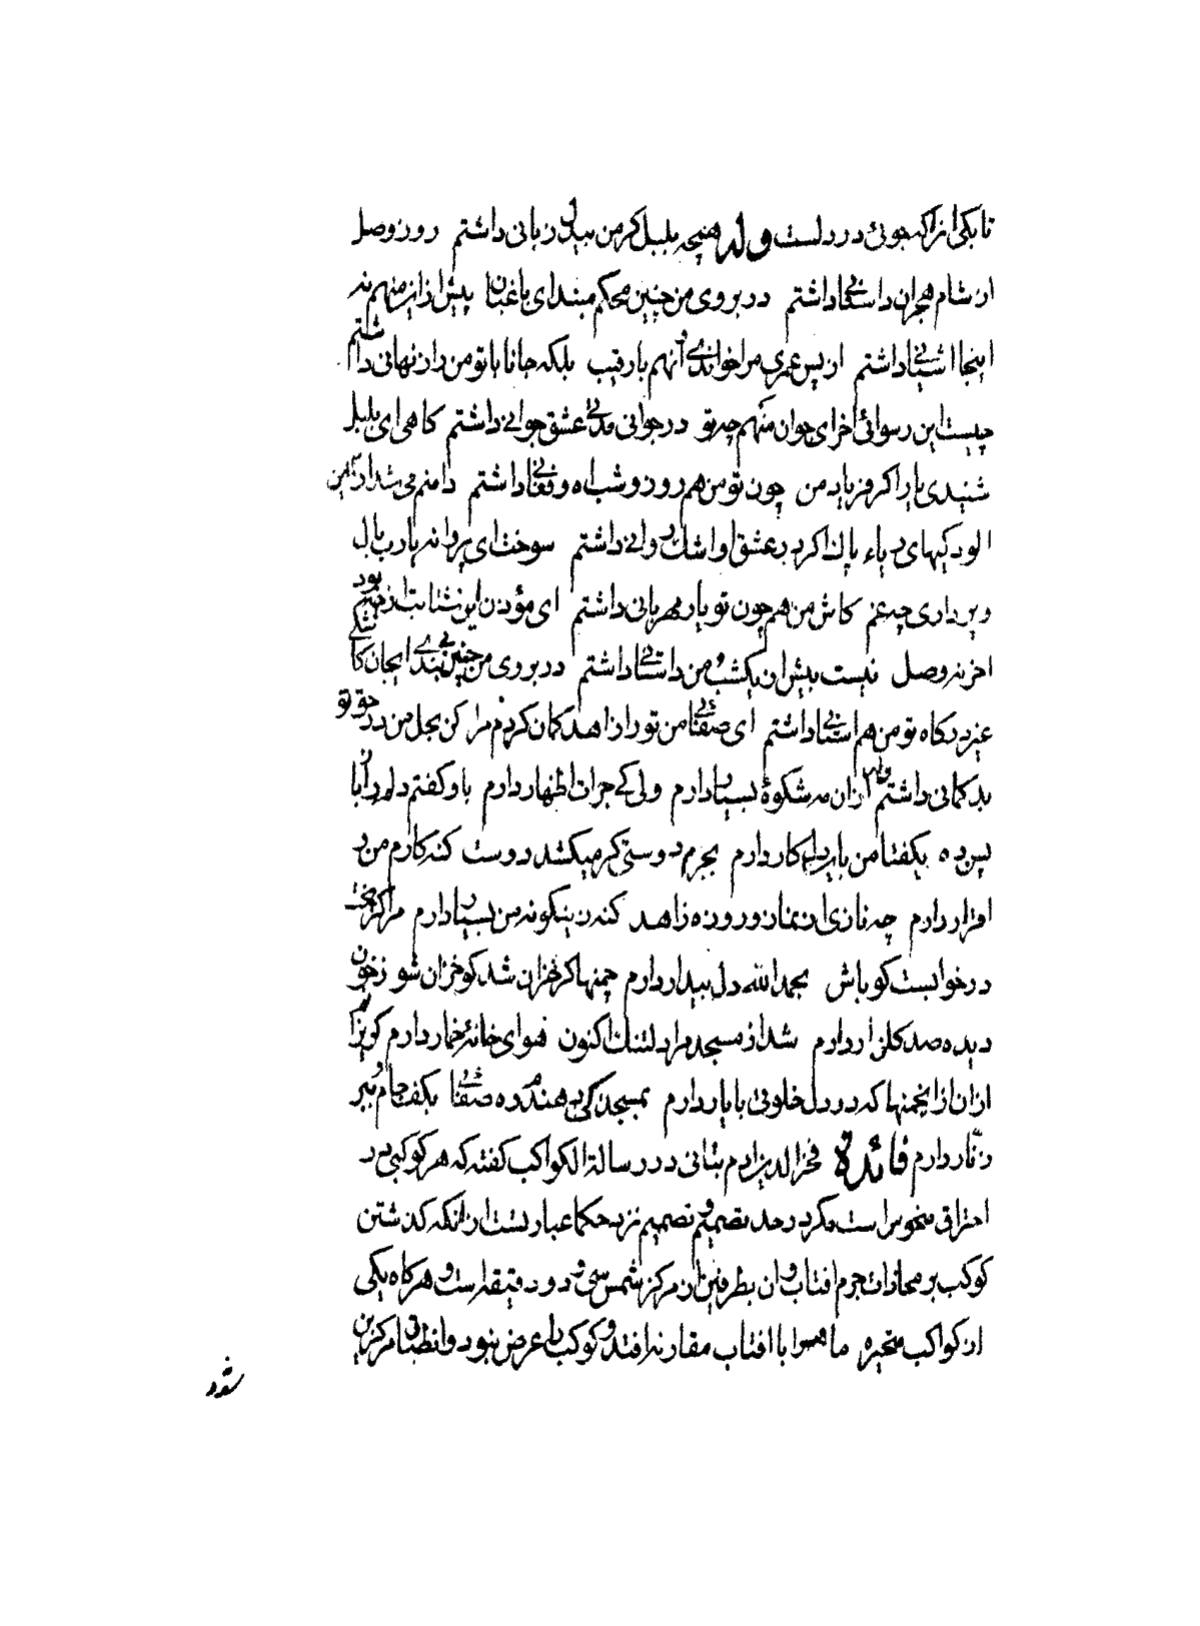 تا بکی از آکه جوئی در دلست وله همچه بلبل کر من بیدل زبانی داشتم روز وصل
از شام هجران داستانها داشتم در بروی من چنین محکم مبند ای باغبان پیش ازاین منهم نه
اینجا آشیانی داشتم از پس عمری مرا خواندی و آنهم با رقیب بلکه جانا با تو من راز نهانی داشتم
چیست این رسوائی اخر ای جوان منهم چه تو در جوانی مدتی عشق جوانی داشتم کاهی ای بلبل
شنیدی یار اکر فریاد من چون تو من هم روز و شب اه و فغانی داشتم دامنم می شد از این
الودکیهای ریاء پاک اکر در عشق او اشک روانی داشتم سوختی ای پروانه یارب بال
و پر داری چه غم کاش من هم چون تو یار مهربانی داشتم ای مؤذن این شتابت از چه بود
اخر نه وصل نیست بیش از یکشب و من داستانها داشتم در بروی من چنین بندی ایجان کا
عزیر نکاه تو من هم آستانی داشتم ای صفائی من تو را زاهد کمان کردم مرا کن بحل من در حق تو
بد کمانی داشتم وله از ان مه شکوهٔ بسیار دارم ولی کی جرات اظهار دارم باو کفتم دلم را با
پس ده بکفتا من باین دل کار دارم بجرم دوستی کر میکشد دوست کنه کارم من و
اقرار دارم چه نازی از نماز و روزه زاهد کنه زینکونه من بسیار دارم مرا کر بخت
در خوابست کو باش بحمد الله دل بیدار دارم چمنها کر خزان شد کو خزان شو ز خون
دیده صد کلزار دارم شد از مسجد مرا دلتنک اکنون هوای خانهٔ خمار دارم
ازان از انجمنها که در دل خلوتی با یار دارم بمسجد کی دهندم ره صفائی بکف جام و ببر
زنّار دارم فائدة فخر الدین ادم بثانی در رسالة الکواکب کفته که هر کوکبی در
احتراق منحوس است مکر در حد تصمیم و تصمیم نزد حکما عبارتست ازانکه کذشتن
کوکب بر محاذات جرم افتاب و ان بطرفین از مرکز شمس سی و دو دقیقه است و هر کاه یکی
از کواکب متحیره ما هسوا با افتاب مقارنه افتد و کوکب را عرض نبود و انطباق مرکزین
شود